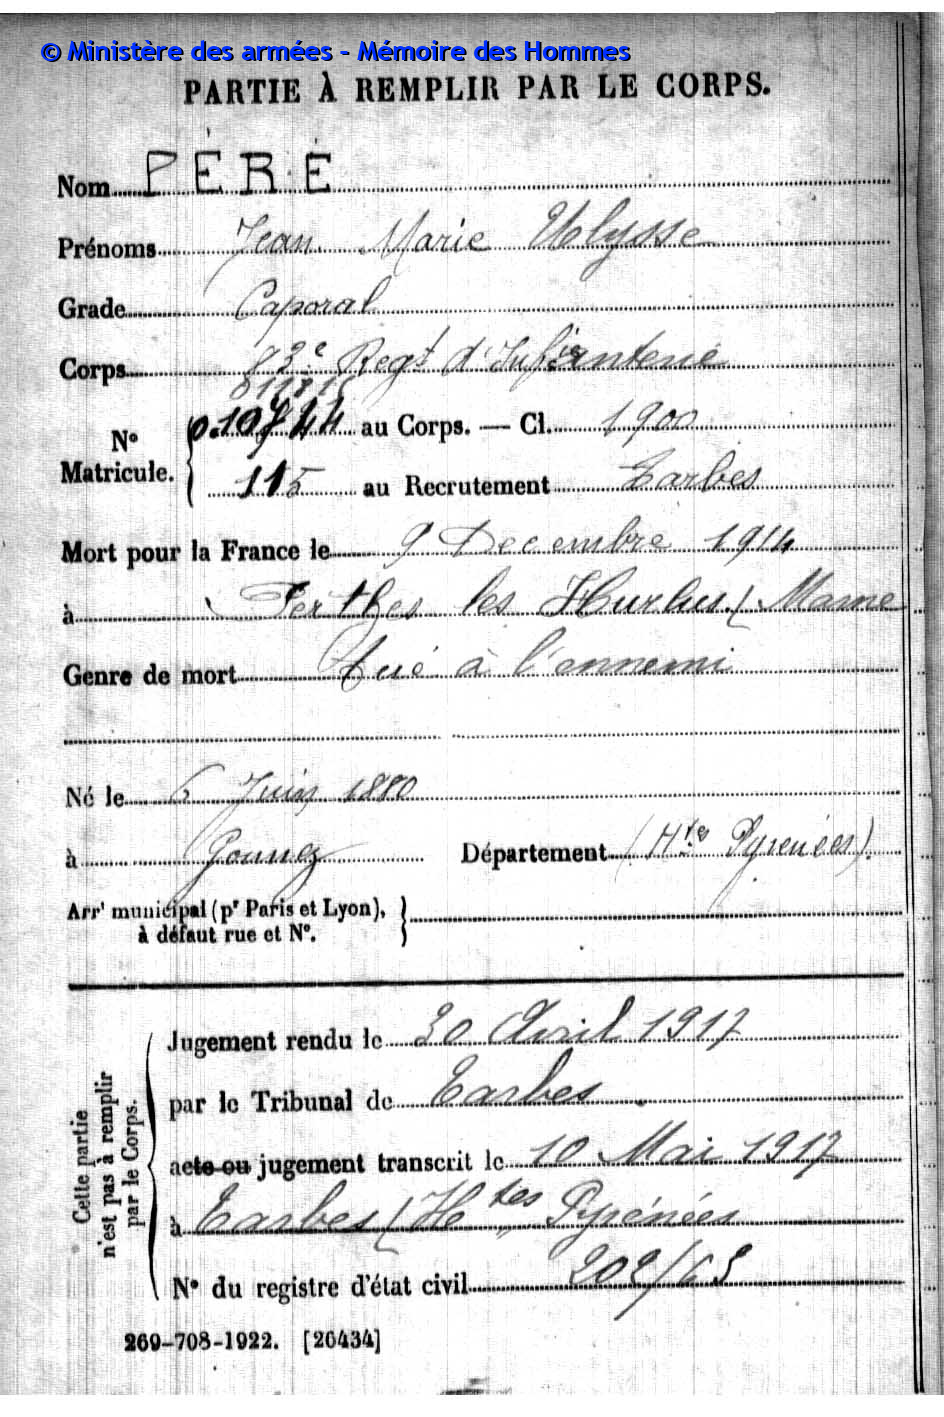 © Ministère des armées - Mémoire des Hommes
PARTIE À REMPLIR PAR LE CORPS.
Nom PÉRÉ
Prénoms Jean Marie Ulysse
Grade Caporal
Corps 83e Regt d'Infanterie
No Matricule. au Corps. — Cl. 1900
115 au Recrutement Tarbes
Mort pour la France le 9 Decembre 1914
à Perthes les Hurlus (Marne
Genre de mort tué à l'ennemi
Né le 6 Juin 1880
à Département (Htes Pyrenées)
Arrt municipal (pr Paris et Lyon),
à défaut rue et No.
Cette partie n'est pas à remplir par le Corps.
Jugement rendu le 30 Avril 1917
par le Tribunal de Tarbes
acte ou jugement transcrit le 10 Mai 1917
à Tarbes (Htes Pyrénées
No du registre d'état civil 202/65
269-708-1922. [26434]